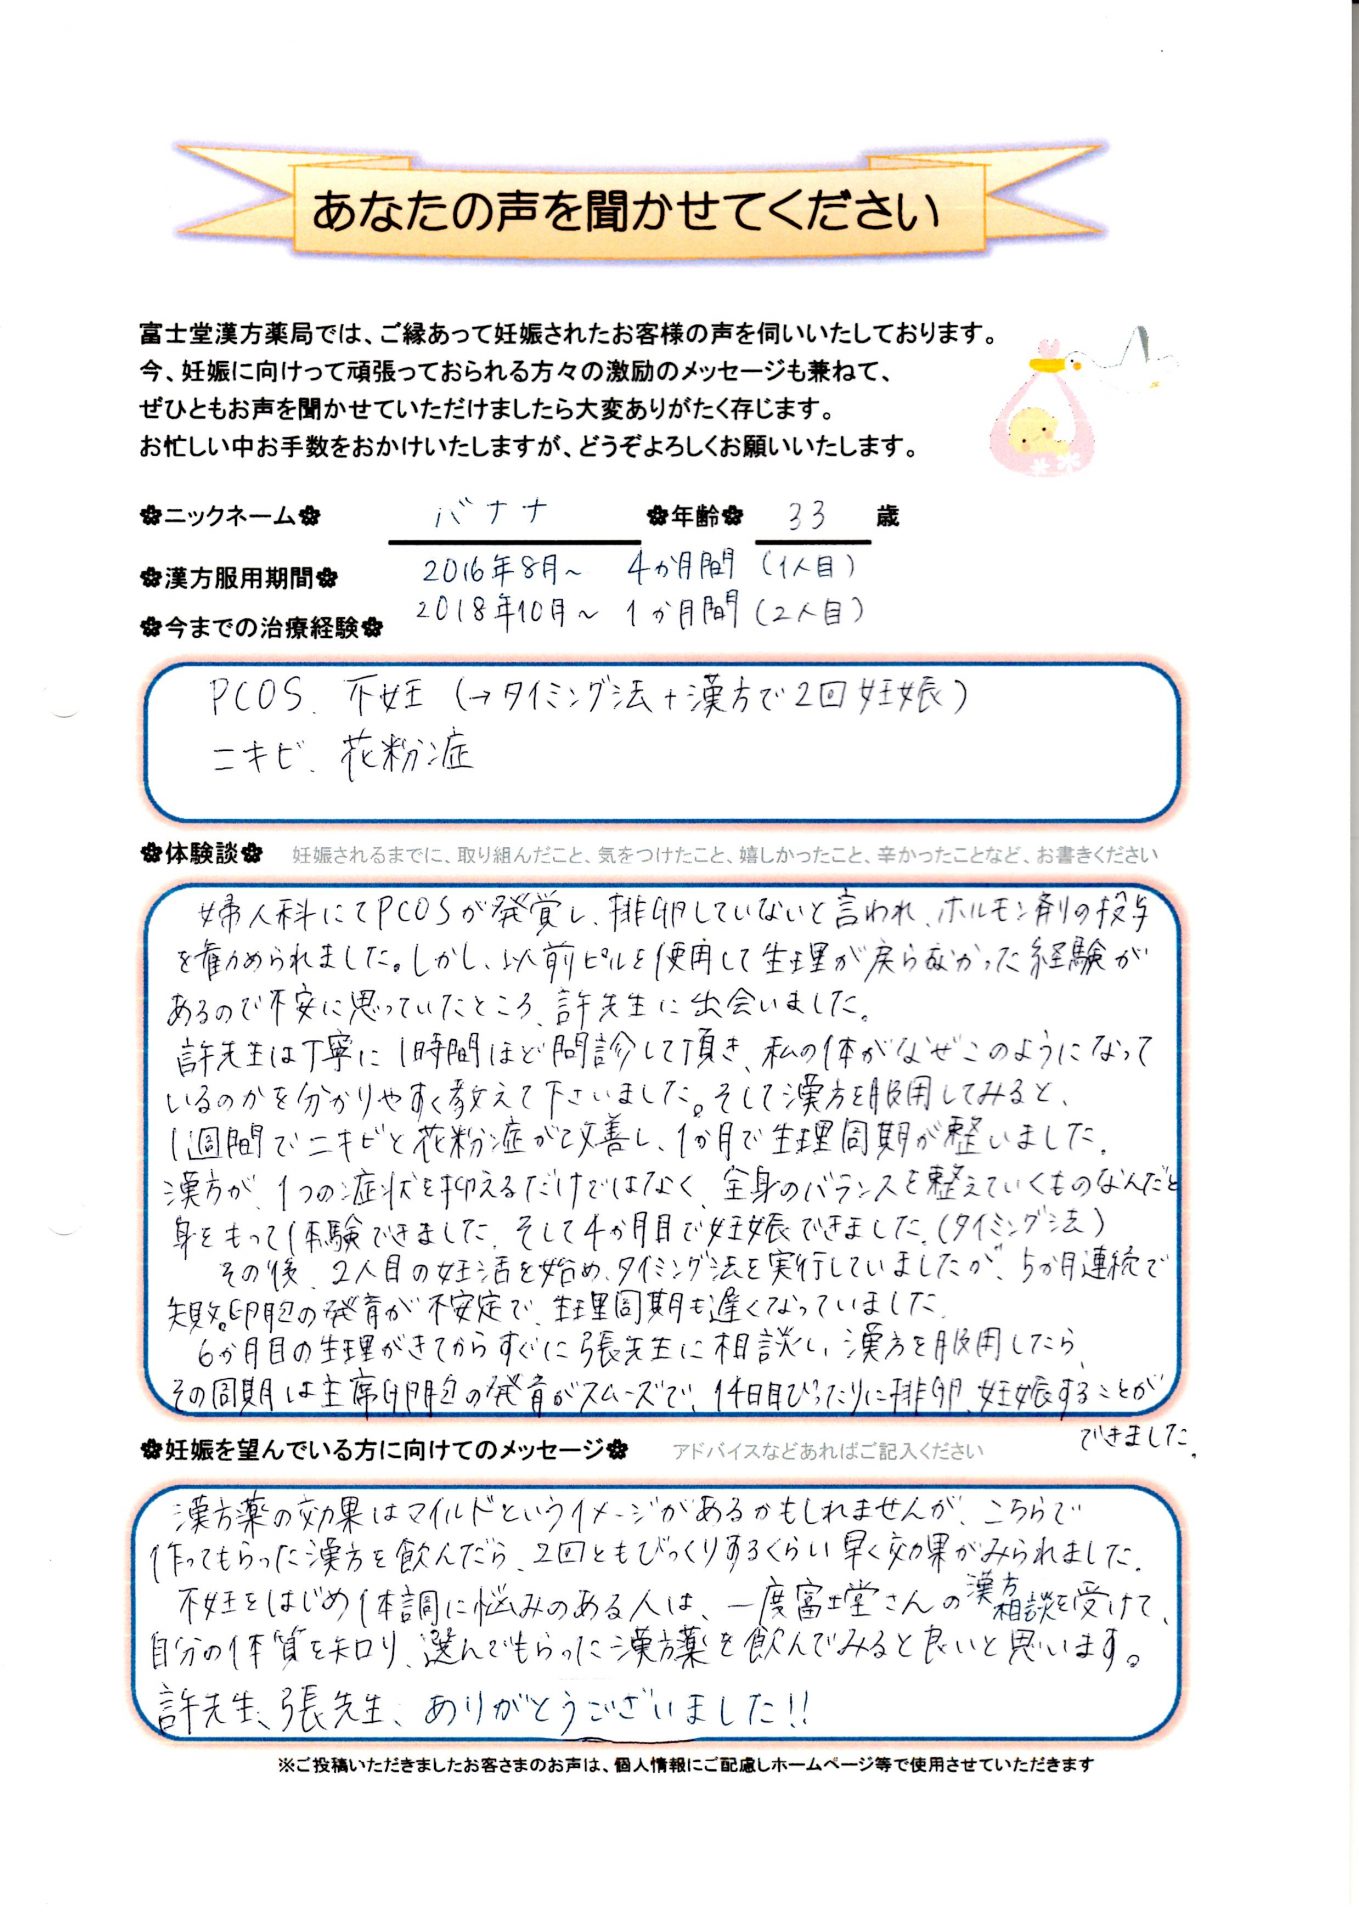 あなたの声を聞かせてください
富士堂漢方薬局では、ご縁あって妊娠されたお客様の声を伺いいたしております。
今、妊娠に向けって頑張っておられる方々の激励のメッセージも兼ねて、
ぜひともお声を聞かせていただけましたら大変ありがたく存じます。
お忙しい中お手数をおかけいたしますが、どうぞよろしくお願いいたします。
✿ニックネーム✿ バナナ ✿年齢✿ 33 歳
✿漢方服用期間✿ 2016年8月～ 4か月間 (1人目)
2018年10月～ 1か月間 (2人目)
✿今までの治療経験✿
PCOS、不妊 (→タイミング法+漢方で2回妊娠)
ニキビ、花粉症
✿体験談✿ 妊娠されるまでに、取り組んだこと、気をつけたこと、嬉しかったこと、辛かったことなど、お書きください
婦人科にてPCOSが発覚し、排卵していないと言われ、ホルモン剤の投与
を薦められました。しかし、以前ピルを使用して生理が戻らなかった経験が
あるので不安に思っていたところ、許先生に出会いました。
許先生は丁寧に1時間ほど問診して頂き、私の体がなぜこのようになって
いるのかを分かりやすく教えて下さいました。そして漢方を服用してみると、
1週間でニキビと花粉症が改善し、1か月で生理周期が整いました。
漢方が、1つの症状を抑えるだけではなく、全身のバランスを整えていくものなんだと
身をもって体験できました。そして4か月目で妊娠できました。(タイミング法)
その後、2人目の妊活を始め、タイミング法を実行していましたが、5か月連続で
失敗。卵胞の発育が不安定で、生理周期も遅くなっていました。
6か月目の生理がきてからすぐに張先生に相談し、漢方を服用したら、
その周期は主席卵胞の発育がスムーズで、14日目ぴったりに排卵、妊娠することが
できました。
✿妊娠を望んでいる方に向けてのメッセージ✿ アドバイスなどあればご記入ください
漢方薬の効果はマイルドというイメージがあるかもしれませんが、こちらで
作ってもらった漢方を飲んだら、2回ともびっくりするくらい早く効果がみられました。
不妊をはじめ体調に悩みのある人は、一度富士堂さんの漢方相談を受けて、
自分の体質を知り、選んでもらった漢方薬を飲んでみると良いと思います。
許先生、張先生、ありがとうございました!!
※ご投稿いただきましたお客さまのお声は、個人情報にご配慮しホームページ等で使用させていただきます